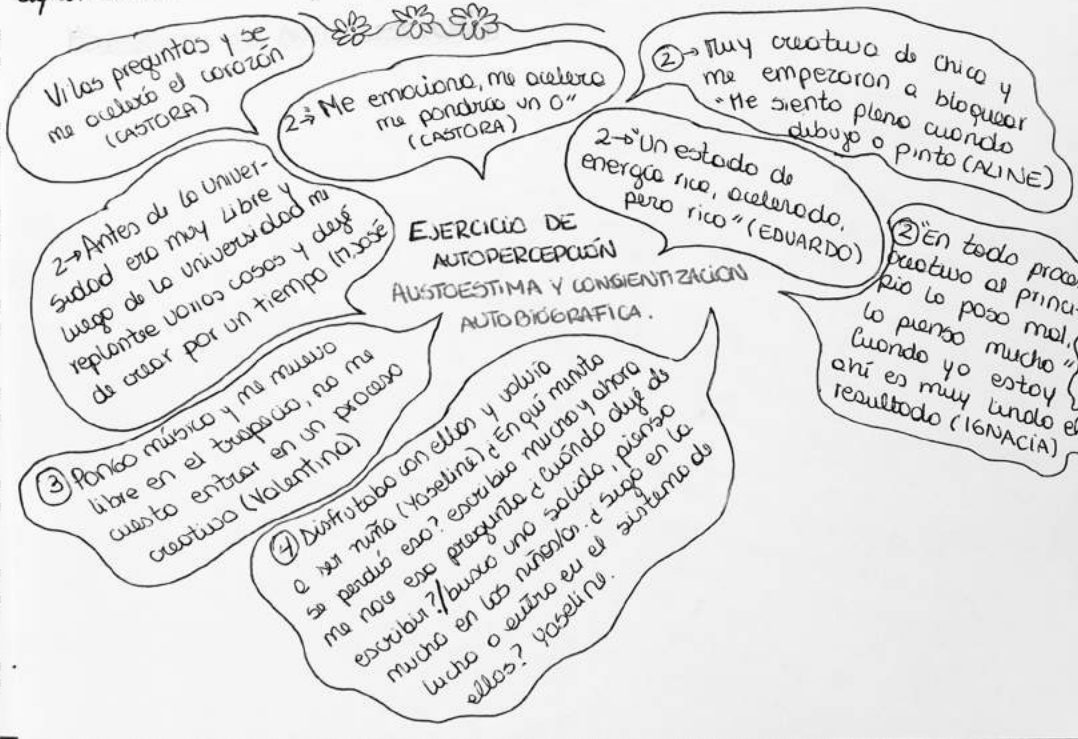 Vi las preguntas y se
me aceleró el corazón
(CASTORA)
2→ Me emociona, me acelera
me pondrías un 0"
(CASTORA)
② → Muy creativa de chica y
me empezaron a bloquear
"Me siento plena cuando
dibujo o pinto (ALINE)
2→"Un estado de
energía rica, acelerada,
pero rico" (EDUARDO)
2→Antes de la Univer-
sidad era muy libre y
luego de la universidad me
replantee varias cosas y dejé
de crear por un tiempo (M.José)
EJERCICIO DE
AUTOPERCEPCIÓN
AUSTOESTIMA Y CONSIENTIZACIÓN
AUTOBIOGRAFICA.
②"En todo proce
creativo al princi-
pio lo paso mal,
lo pienso mucho"
Cuando yo estoy
ahí es muy lindo el
resultado (IGNACIA)
③ Pongo música y me muevo
libre en el trapacio, no me
cuesta entrar en un proceso
creativo (Valentina)
④ Disfrutaba con ellos y volvía
a ser niña (Yoseline) ¿En qué minuto
se perdió eso? escribía mucho y ahora
me nace esa pregunta ¿Cuándo dejé de
escribir?/busco una salida, pienso
mucho en los niños/as. ¿Sigo en la
lucha o entro en el sistema de
ellos? Yoseline.